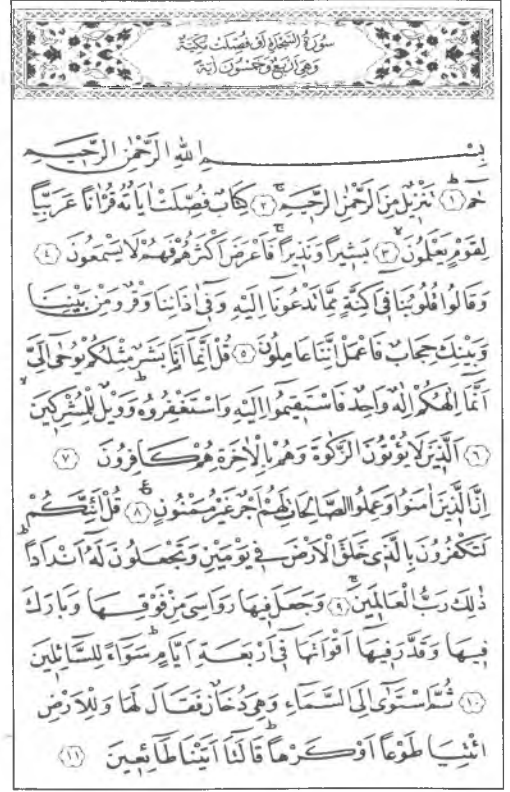 سُورَةُ السَّجْدَةِ اَوْ فُصِّلَتْ مَكِّيَّةٌ
وَهِيَ اَرْبَعٌ وَخَمْسُونَ اٰيَةً
بِسْمِ اللهِ الرَّحْمٰنِ الرَّحِيمِ
حٰمٓ ﴿١﴾ تَنْزِيلٌ مِنَ الرَّحْمٰنِ الرَّحِيمِ ﴿٢﴾ كِتَابٌ فُصِّلَتْ اٰيَاتُهُ قُرْاٰنًا عَرَبِيًّا
لِقَوْمٍ يَعْلَمُونَ ﴿٣﴾ بَشِيرًا وَنَذِيرًا فَاَعْرَضَ اَكْثَرُهُمْ فَهُمْ لَا يَسْمَعُونَ ﴿٤﴾
وَقَالُوا قُلُوبُنَا فِٓي اَكِنَّةٍ مِمَّا تَدْعُونَٓا اِلَيْهِ وَفِٓي اٰذَانِنَا وَقْرٌ وَمِنْ بَيْنِنَا
وَبَيْنِكَ حِجَابٌ فَاعْمَلْ اِنَّنَا عَامِلُونَ ﴿٥﴾ قُلْ اِنَّمَٓا اَنَا بَشَرٌ مِثْلُكُمْ يُوحٰٓى اِلَيَّ
اَنَّمَٓا اِلٰهُكُمْ اِلٰهٌ وَاحِدٌ فَاسْتَقِيمُٓوا اِلَيْهِ وَاسْتَغْفِرُوهُ وَوَيْلٌ لِلْمُشْرِكِينَ
﴿٦﴾ اَلَّذِينَ لَا يُؤْتُونَ الزَّكٰوةَ وَهُمْ بِالْاٰخِرَةِ هُمْ كَافِرُونَ ﴿٧﴾
اِنَّ الَّذِينَ اٰمَنُوا وَعَمِلُوا الصَّالِحَاتِ لَهُمْ اَجْرٌ غَيْرُ مَمْنُونٍ ﴿٨﴾ قُلْ اَئِنَّكُمْ
لَتَكْفُرُونَ بِالَّذِي خَلَقَ الْاَرْضَ فِي يَوْمَيْنِ وَتَجْعَلُونَ لَهُٓ اَنْدَادًا
ذٰلِكَ رَبُّ الْعَالَمِينَ ﴿٩﴾ وَجَعَلَ فِيهَا رَوَاسِيَ مِنْ فَوْقِهَا وَبَارَكَ
فِيهَا وَقَدَّرَ فِيهَٓا اَقْوَاتَهَا فِٓي اَرْبَعَةِ اَيَّامٍ سَوَٓاءً لِلسَّٓائِلِينَ
﴿١٠﴾ ثُمَّ اسْتَوٰٓى اِلَى السَّمَٓاءِ وَهِيَ دُخَانٌ فَقَالَ لَهَا وَلِلْاَرْضِ
ائْتِيَا طَوْعًا اَوْ كَرْهًا قَالَتَٓا اَتَيْنَا طَٓائِعِينَ ﴿١١﴾